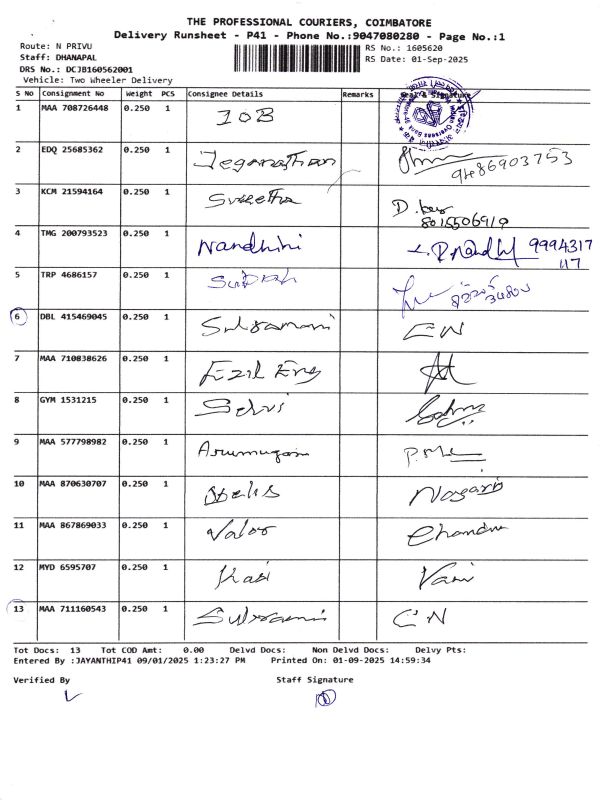 THE PROFESSIONAL COURIERS, COIMBATORE
Delivery Runsheet - P41 - Phone No.:9047080280 - Page No.:1
Route: N PRIVU
RS No.: 1605620
Staff: DHANAPAL
RS Date: 01-Sep-2025
DRS No.: DCJB160562001
Vehicle: Two Wheeler Delivery
S No Consignment No Weight PCS Consignee Details Remarks Seal & Signature
1 MAA 708726448 0.250 1 IOB
2 EDQ 25685362 0.250 1 Jeganathan 9486903753
3 KCM 21594164 0.250 1 Swetha
4 TMG 200793523 0.250 1 Nandhini 9994317
117
5 TRP 4686157 0.250 1
6 DBL 415469045 0.250 1 Subramani EN
7 MAA 710838626 0.250 1 Ezil Eng
8 GYM 1531215 0.250 1 Selvi
9 MAA 577798982 0.250 1 Arumugam
10 MAA 870630707 0.250 1 Nagaraj
11 MAA 867869033 0.250 1 Valar Chandru
12 MYD 6595707 0.250 1 Kasi Vani
13 MAA 711160543 0.250 1 Subramani EN
Tot Docs: 13 Tot COD Amt: 0.00 Delvd Docs: Non Delvd Docs: Delvy Pts:
Entered By :JAYANTHIP41 09/01/2025 1:23:27 PM Printed On: 01-09-2025 14:59:34
Verified By Staff Signature